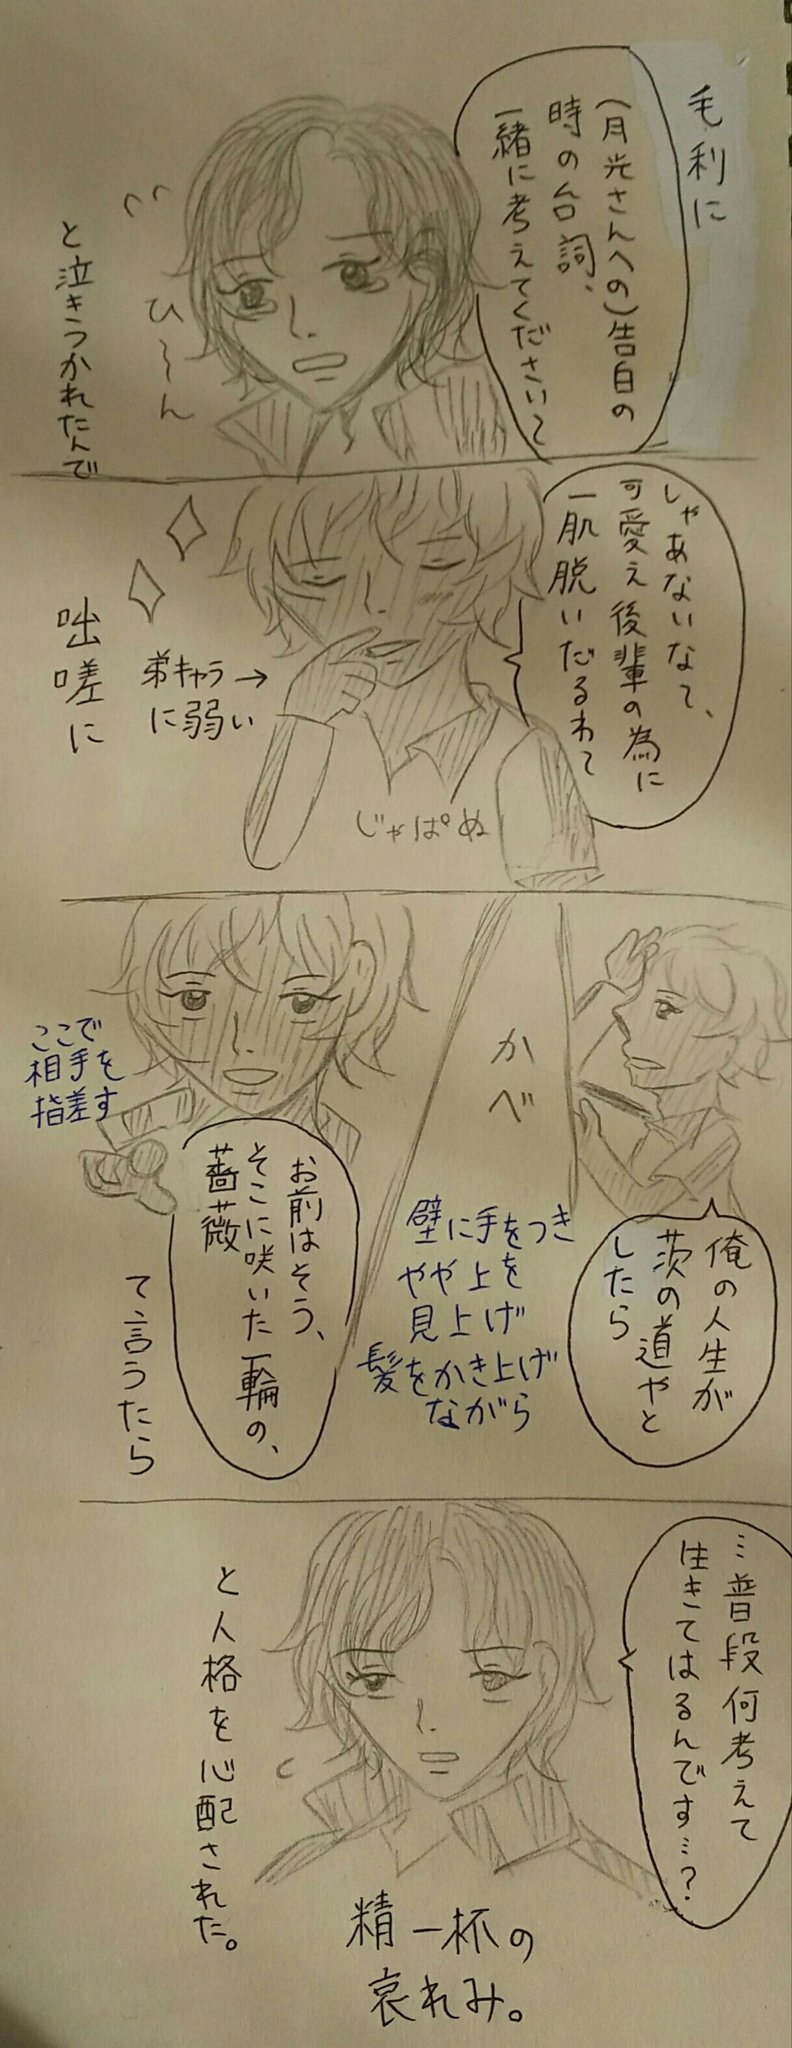 毛利に
(月光さんへの)告白の
時の台詞、
一緒に考えてくださいて
ひ〜ん
と泣きつかれたんで
しゃあないなて、
可愛え後輩の為に
一肌脱いだるわて
弟キャラ→
に弱い
咄嗟に
じゃぱぬ
俺の人生が
茨の道やと
したら
かべ
壁に手をつき
やや上を
見上げ
髪をかき上げ
ながら
お前はそう、
そこに咲いた一輪の、
薔薇
ここで
相手を
指差す
て言うたら
…普段何考えて
生きてはるんです…?
と人格を心配された。
精一杯の
哀れみ。